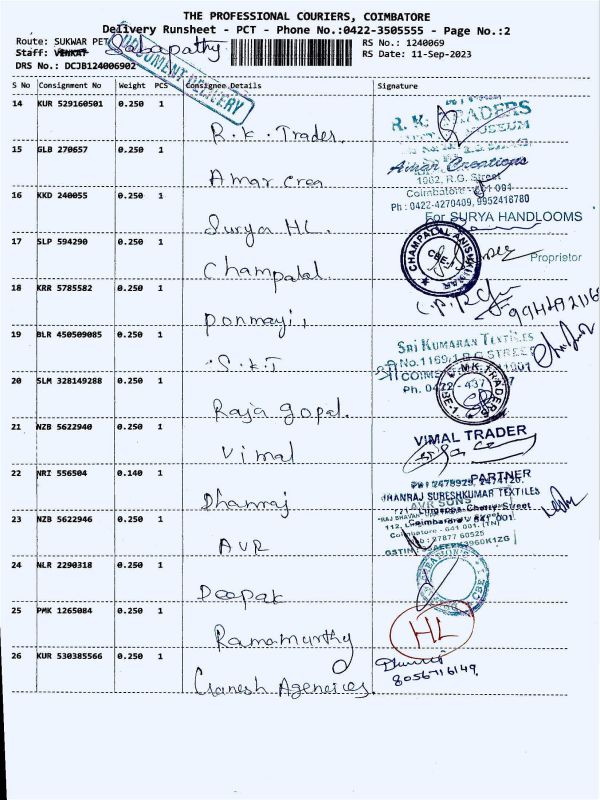 THE PROFESSIONAL COURIERS, COIMBATORE
Delivery Runsheet - PCT - Phone No.:0422-3505555 - Page No.:2
Route: SUKWAR PET RS No.: 1240069
Staff: VENKAT Sabapathy RS Date: 11-Sep-2023
DRS No.: DCJB124006902
DOCUMENT DELIVERY
S No Consignment No Weight PCS Consignee Details Signature
14 KUR 529160501 0.250 1
R.K. Trades.
R. K. TRADERS
15 GLB 270657 0.250 1
Amar Crea
Amar Creations
1082, R.G. Street
Coimbatore - 641 001
Ph : 0422-4270409, 9952418780
16 KKD 240055 0.250 1
Surya HL.
For SURYA HANDLOOMS
Proprietor
17 SLP 594290 0.250 1
Champalal
CHAMPALAL ANISHKUMAR
CBE-1
18 KRR 5785582 0.250 1
Ponmayi,
19 BLR 450509085 0.250 1
S.K.T
SRI KUMARAN TEXTILES
20 SLM 328149288 0.250 1
Raja gopal.
M.K. TRADERS
CBE-1
21 NZB 5622940 0.250 1
Vimal
VIMAL TRADER
PARTNER
22 NRI 556504 0.140 1
Dhanraj
DHANRAJ SURESHKUMAR TEXTILES
23 NZB 5622946 0.250 1
AVR
AVR SONS
24 NLR 2290318 0.250 1
Deepak
25 PMK 1265084 0.250 1
Ramamurthy
HL
26 KUR 530385566 0.250 1
Ganesh Agencies.
8056716149